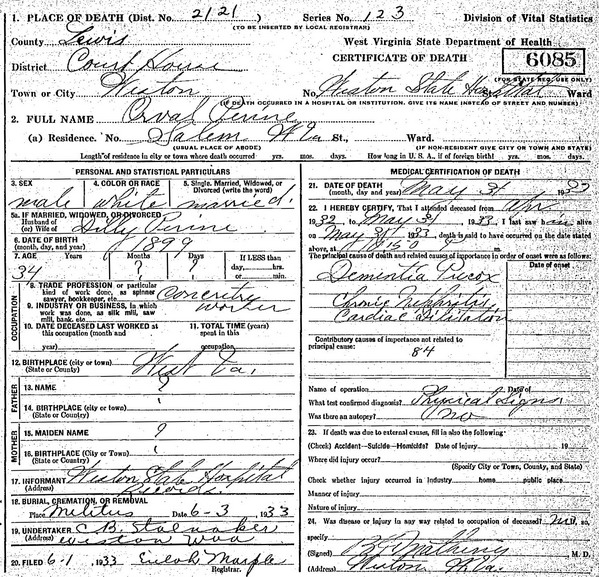 1. PLACE OF DEATH (Dist. No. 2121 ) Series No. 123 Division of Vital Statistics
(TO BE INSERTED BY LOCAL REGISTRAR)
County Lewis West Virginia State Department of Health
District Court House CERTIFICATE OF DEATH 6085
(FOR STATE REG. USE ONLY)
Town or City Weston No. Weston State Hospital Ward
(IF DEATH OCCURRED IN A HOSPITAL OR INSTITUTION, GIVE ITS NAME INSTEAD OF STREET AND NUMBER)
2. FULL NAME Orval Perine
(a) Residence. No. Salem W Va St., Ward.
(USUAL PLACE OF ABODE) (IF NON-RESIDENT GIVE CITY OR TOWN AND STATE)
Length of residence in city or town where death occurred yrs. mos. days. How long in U. S. A., if of foreign birth? yrs. mos. days
PERSONAL AND STATISTICAL PARTICULARS
3. SEX 4. COLOR OR RACE 5. Single, Married, Widowed, or Divorced (write the word)
male white married.
5a. IF MARRIED, WIDOWED, OR DIVORCED
Husband of
(or) Wife of Perine
6. DATE OF BIRTH 1899
(month, day, and year)
7. AGE Months Days If LESS than
34 ? ? day, hrs.
or min.
OCCUPATION
8. TRADE PROFESSION or particular
kind of work done, as spinner
sawyer, bookkeeper, etc.
9. INDUSTRY OR BUSINESS, in which worker
work was done, as silk mill, saw
mill, bank, etc.
10. DATE DECEASED LAST WORKED at 11. TOTAL TIME (years)
this occupation (month and spent in this
year) occupation
12. BIRTHPLACE (city or town) West Va.
(State or County)
FATHER
13. NAME ?
14. BIRTHPLACE (city or town)
(State or Country)
MOTHER
15. MAIDEN NAME ?
16. BIRTHPLACE (City or Town)
(State or Country)
17. INFORMANT Weston State Hospital
(Address) Records.
18. BURIAL, CREMATION, OR REMOVAL
Place Date 6-3 1933
19. UNDERTAKER C.B. Stalnaker
(Address) Weston Wva
20. FILED 6-1 1933 Eulah Marple
Registrar.
MEDICAL CERTIFICATION OF DEATH
21. DATE OF DEATH May 31 1933
(month, day and year)
22. I HEREBY CERTIFY, That I attended deceased from Apr.
1932 to May 31 1933. I last saw him alive
on May 31 1933 death is said to have occurred on the date stated
above, at P
The principal cause of death and related causes of importance in order of onset were as follows:
Date of onset
Dementia Precox
Chronic Nephritis
Cardiac Dilitation
Contributory causes of importance not related to
principal cause: 84
Name of operation Date of
What test confirmed diagnosis? Physical Signs
Was there an autopsy? no
23. If death was due to external causes, fill in also the following:
(Check) Accident—Suicide—Homicide? Date of injury 19
Where did injury occur?
(Specify City or Town, County, and State)
Check whether injury occurred in Industry home public place
Manner of injury
Nature of injury
24. Was disease or injury in any way related to occupation of deceased? no.
If so, specify
(Signed) Matheny M. D.
(Address) Weston W.Va.